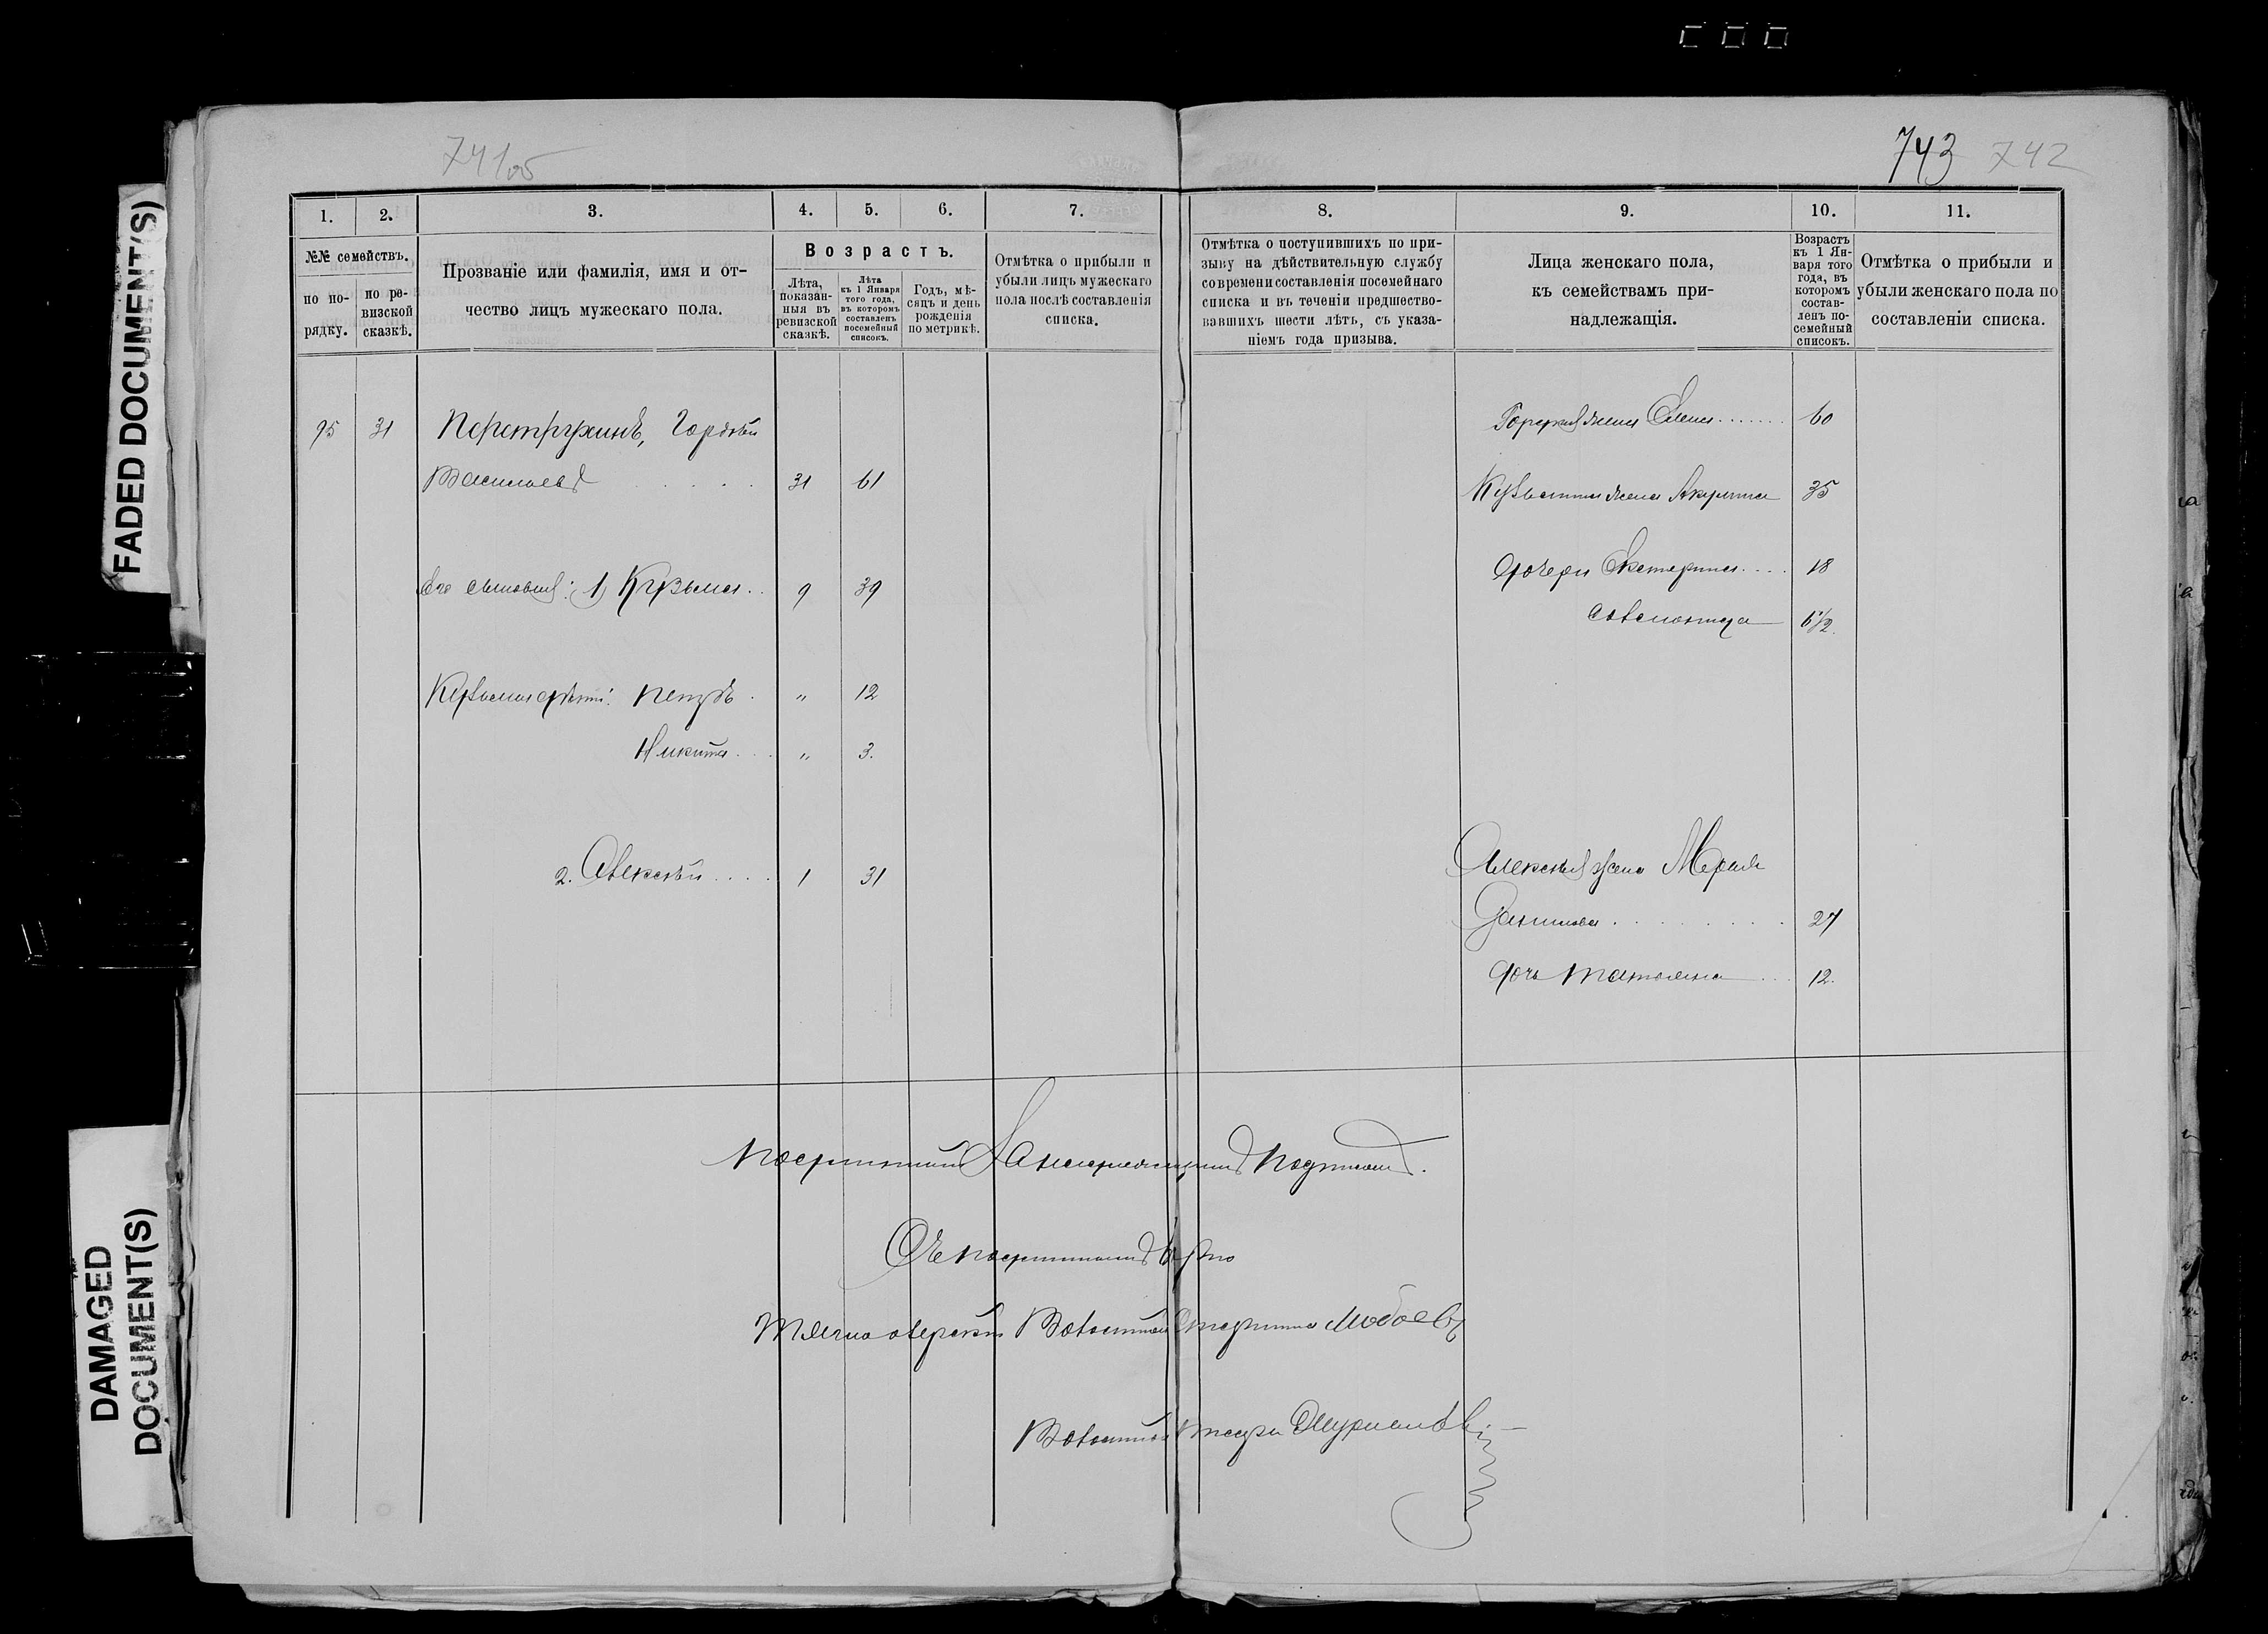 FADED DOCUMENT(S)
DAMAGED
DOCUMENT(S)
741об
743 742
1. 2. 3. 4. 5. 6. 7.
№№ семействъ.
по по-
рядку.
по ре-
визской
сказкѣ.
Прозваніе или фамилія, имя и от-
чество лицъ мужескаго пола.
Возрастъ.
Лѣта,
показан-
ныя въ
ревизской
сказкѣ.
Лѣта
къ 1 Января
того года,
въ которомъ
составленъ
посемейный
списокъ.
Годъ, мѣ-
сяцъ и день
рожденія
по метрикѣ.
Отмѣтка о прибыли и
убыли лицъ мужескаго
пола послѣ составленія
списка.
95 31 Перетрухинъ, Гордѣй
Васильевъ 31 61
Его сыновья: 1) Кузьма.. 9 39
Кузьмы дѣти: Петръ. " 12
Никита... " 3.
2. Алексѣй.... 1 31
8. 9. 10. 11.
Отмѣтка о поступившихъ по при-
зыву на дѣйствительную службу
со времени составленія посемейнаго
списка и въ теченіи предшество-
вавшихъ шести лѣтъ, съ указа-
ніемъ года призыва.
Лица женскаго пола,
къ семействамъ при-
надлежащія.
Возрастъ
къ 1 Ян-
варя того
года, въ
которомъ
состав-
ленъ по-
семейный
списокъ.
Отмѣтка о прибыли и
убыли женскаго пола по
составленіи списка.
Гордѣя жена Елена....... 60
Кузьмы жена Акулина 35
дочери Екатерина.... 18
6½.
Алексѣя жена Марья
Данилова 27
дочь Татьяна ... 12.
Подлинный за надлежащимъ подписомъ.
Съ подлиннымъ вѣрно
Волостной Старшина
Волостной Писарь